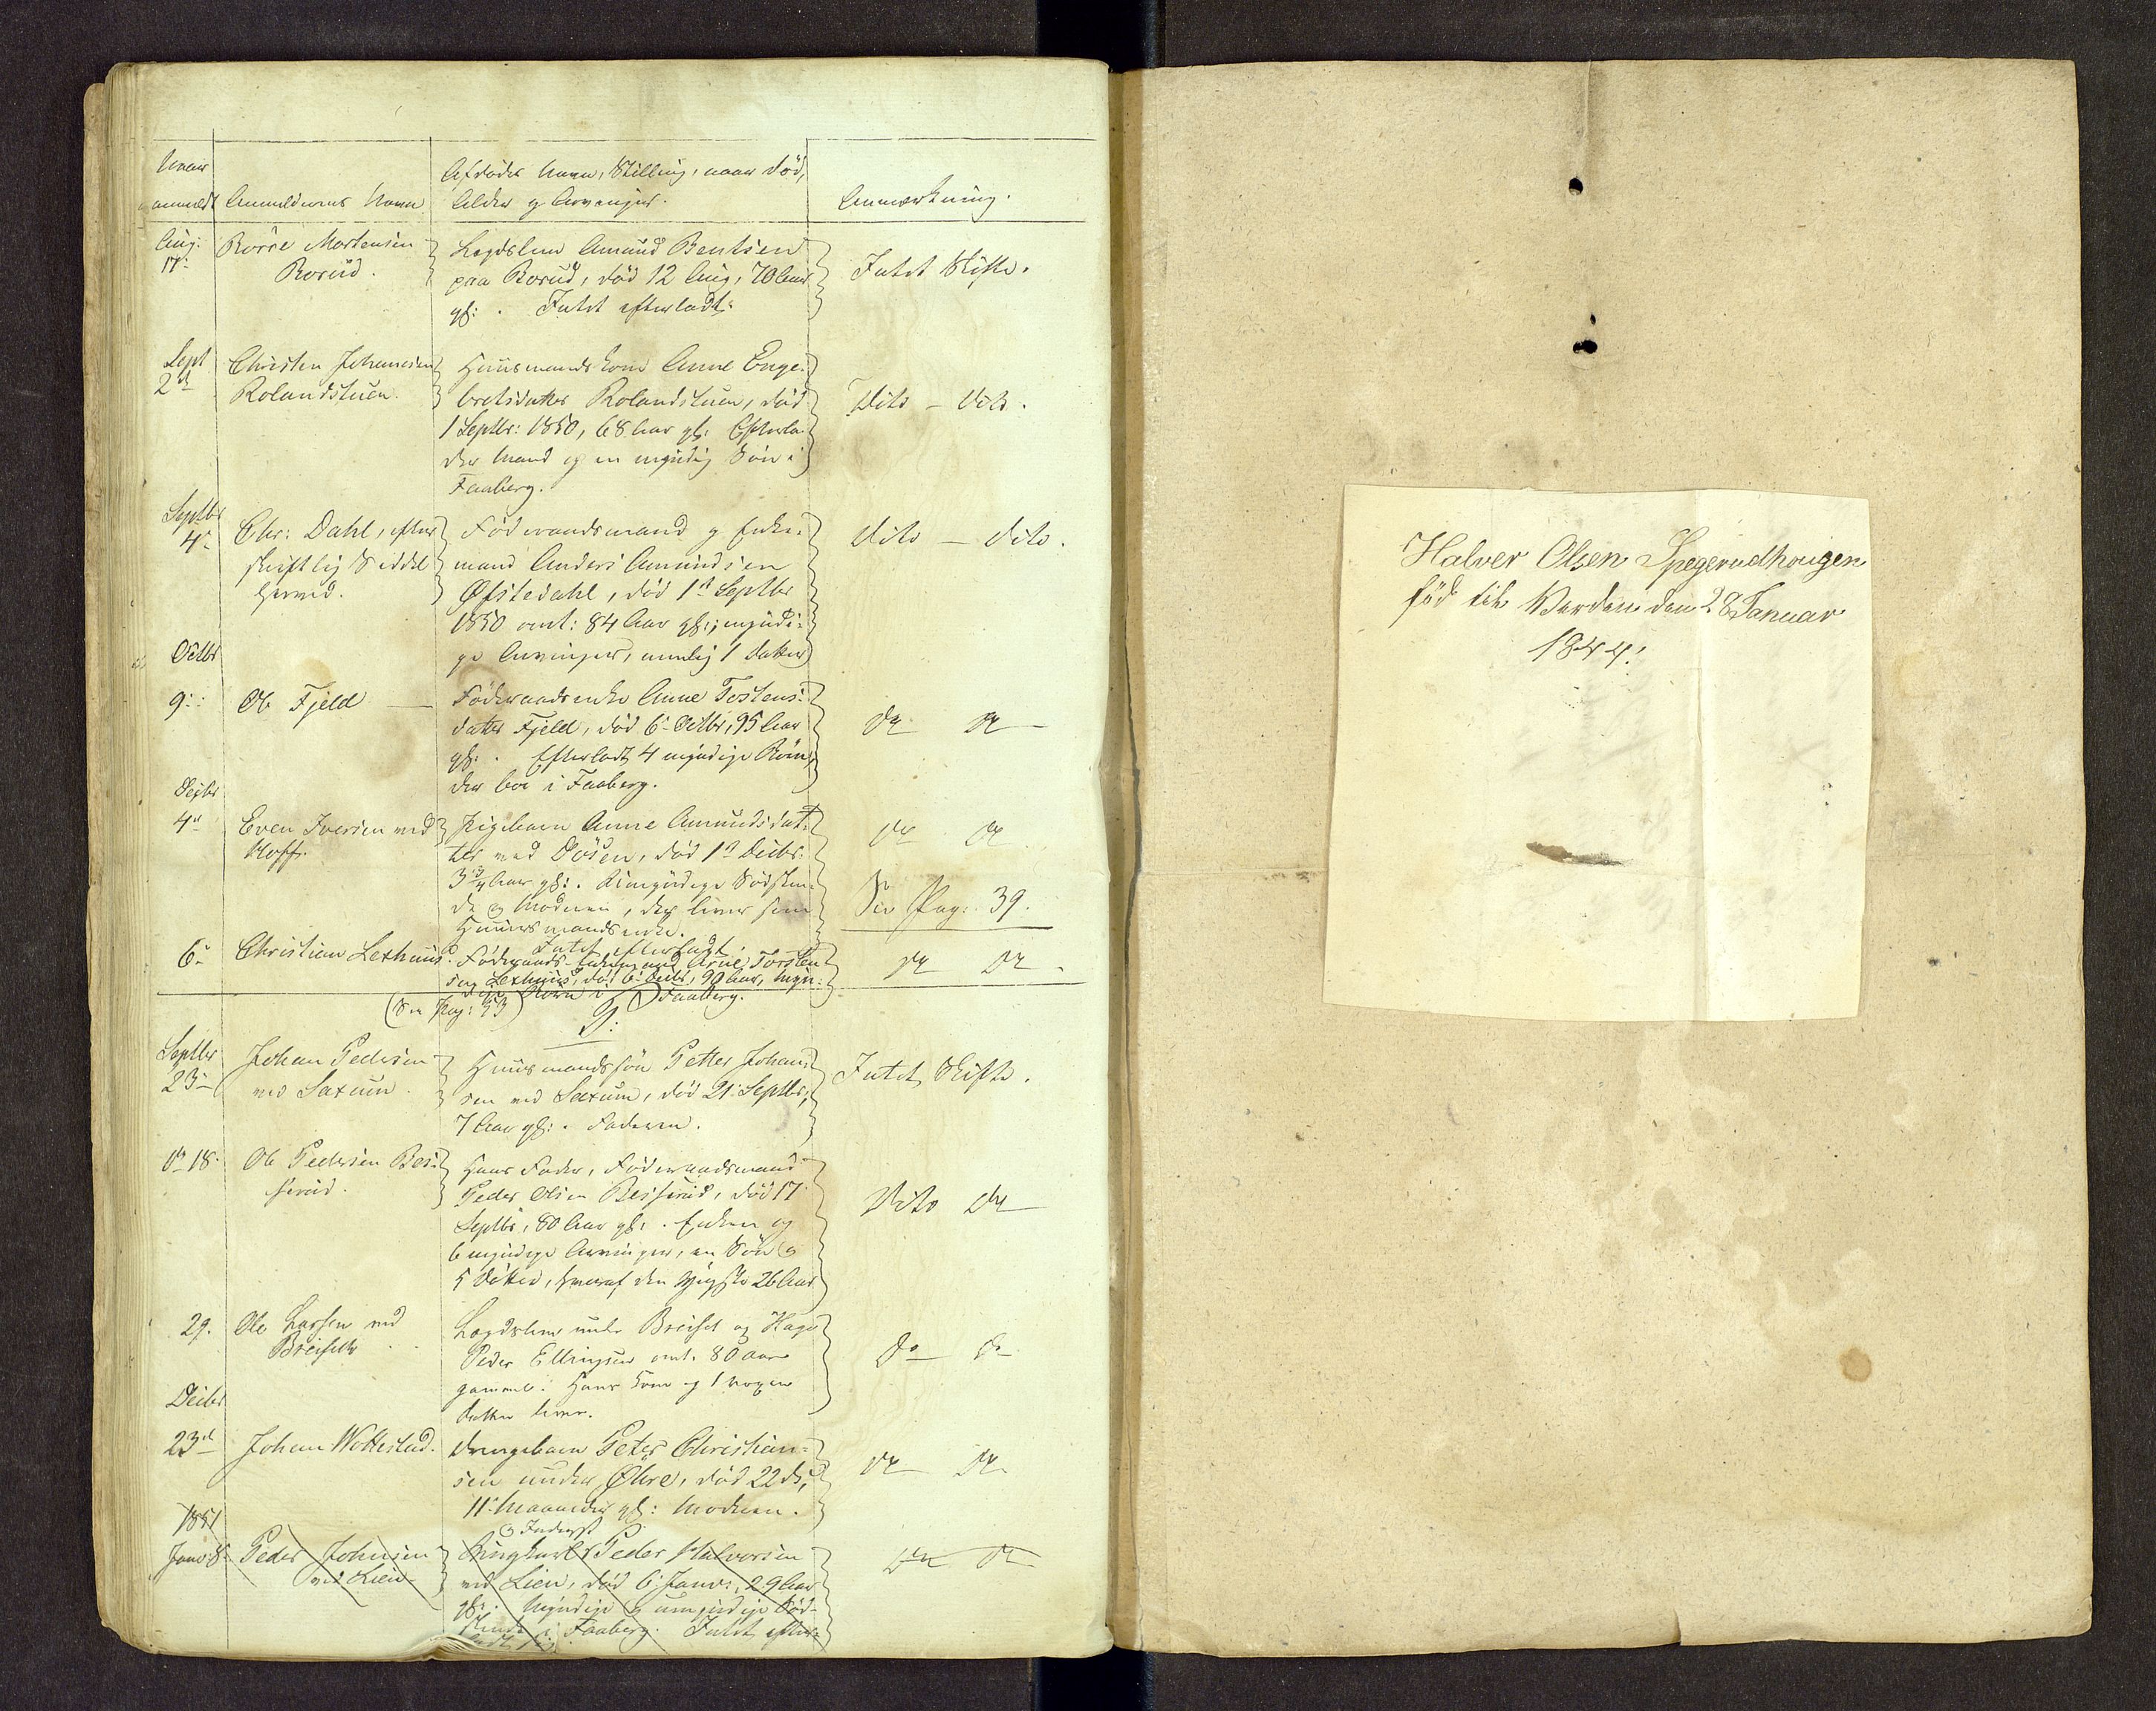 Naar
anmeldt
Anmelderens Navn
Afdødes Navn, Stilling, naar død,
Alder og Arvinger.
Anmærkning.
Aug:
17:
Borre Mortensen
Borud.
Lægdslem Amund Bentsen
paa Borud, død 12 Aug, 70 Aar
gl: . Intet efterladt.
Intet Skifte.
Sept
2d
Christen Johannesen
Rolandstuen.
Huusmandskone Anne Enge-
bretsdatter Rolandstuen, død
1 Septbr: 1850, 68 Aar gl: Efterla-
der Mand og en myndig Søn i
Faaberg.
Dito - Dito.
Septbr
4de
Chr: Dahl, efter
skriftlig Seddel
herved.
Føderaadsmand og Enke-
mand Anders Amundsen
Øfstedahl, død 1st Septbr
1850 omt: 84 Aar gl:, myndi-
ge Arvinger, nemlig 1 Datter
Dito - Dito.
Octbr
9::
Ole Fjeld
Føderaadsenke Anne Tostens-
datter Fjeld, død 6 Octbr, 95 Aar
gl: . Efterladt 4 myndige Børn,
der boe i Faaberg.
Do Do
Decbr
4d
Even Iversen ved
Hoff.
Pigebarn Anne Amundsdat-
ter ved Døsen, død 1st Decbr:
3 3/4 Aar gl: . Umyndige Sødsken-
de og Moderen, der lever som
Huusmandsenke.
Intet efterladt.
Do Do
See Pag: 39.
6-
Christian Lethuus.
Føderaads-Enkemand Arne Torsten-
sen Lethuus, død 6 Decbr, 90 Aar, Myn-
dige Børn i Faaberg.
Do Do
(See Pag: 33)
D:
Septbr
23-
Johan Pedersen
ved Saxum.
Huusmandssøn Petter Johan-
sen ved Saxum, død 21 Septbr,
7 Aar gl: . Faderen.
Intet Skifte.
Do 18.
Ole Pedersen Bes-
serud.
Hans Fader, Føderaadsmand
Peder Olsen Besserud, død 17
Septbr, 80 Aar gl: . Enken og
6 myndige Arvinger, en Søn og
5 Døttre, hvoraf den yngste 26 Aar
Dito Do
29.
Ole Larsen ved
Breiseth
Lægdslem under Breiset og Hage
Peder Ellingsen omt. 80 aar
gammel. Hans Kone og 1 voxen
datter lever.
Do Do
Decbr
23d
Johan Wottestad.
Drengebarn Peter Christian-
sen under Øhre, død 22 ds,
11 Maaneder gl: Moderen.
Do Do
1851
Janv: 8
Peder Johnsen
ved Lien
og Inderst
Ungkarl Peder Halvorsen
ved Lien, død 6 Janv:, 29 Aar
gl: . Myndige og umyndige Sød-
skende i Faaberg. Intet efter-
ladt sig.
Do Do
Halver Olsen Spegerudhougen
född till Werden den 28 Januar
1844!